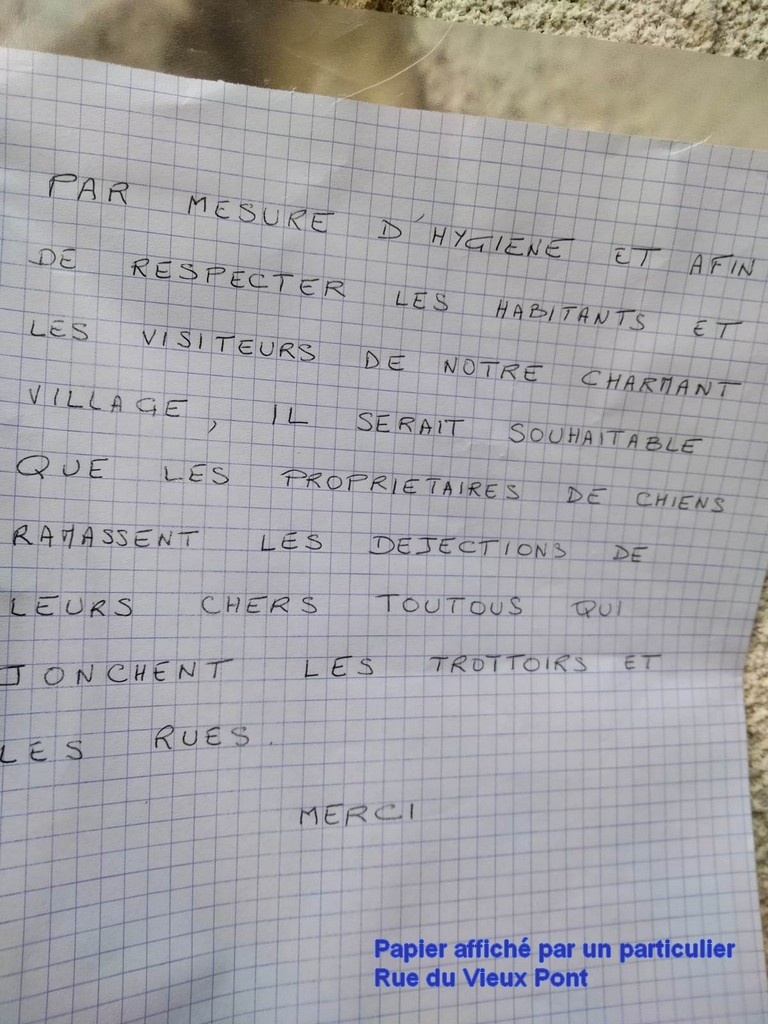 PAR MESURE D'HYGIENE ET AFIN
DE RESPECTER LES HABITANTS ET
LES VISITEURS DE NOTRE CHARMANT
VILLAGE, IL SERAIT SOUHAITABLE
QUE LES PROPRIETAIRES DE CHIENS
RAMASSENT LES DEJECTIONS DE
LEURS CHERS TOUTOUS QUI
JONCHENT LES TROTTOIRS ET
LES RUES.
MERCI
Papier affiché par un particulier
Rue du Vieux Pont